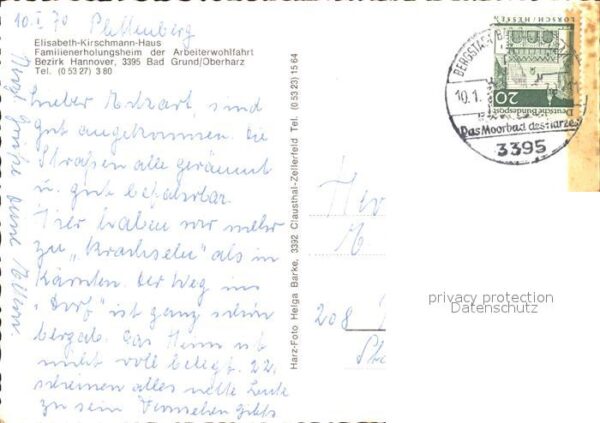 10. I. 70
Elisabeth-Kirschmann-Haus
Familienerholungsheim der Arbeiterwohlfahrt
Bezirk Hannover, 3395 Bad Grund/Oberharz
Tel. (0 53 27) 3 80
sind
gut angekommen. Die
Straßen alle geräumt
u. gut befahrbar.
Hier haben wir mehr
zu „Krachseln“ als in
Kärnten. Der Weg ins
„Dorf“ ist ganz schön
bergab. Das Heim ist
nicht voll belegt. 22.
scheinen alles nette Leute
zu sein Fernsehen gibts
Harz-Foto Helga Barke, 3392 Clausthal-Zellerfeld Tel. (0 53 23) 15 64
LORSCH/HESSEN
20
Deutsche Bundespost
10.1.
Das Moorbad des Harzes
3395
privacy protection
Datenschutz
208